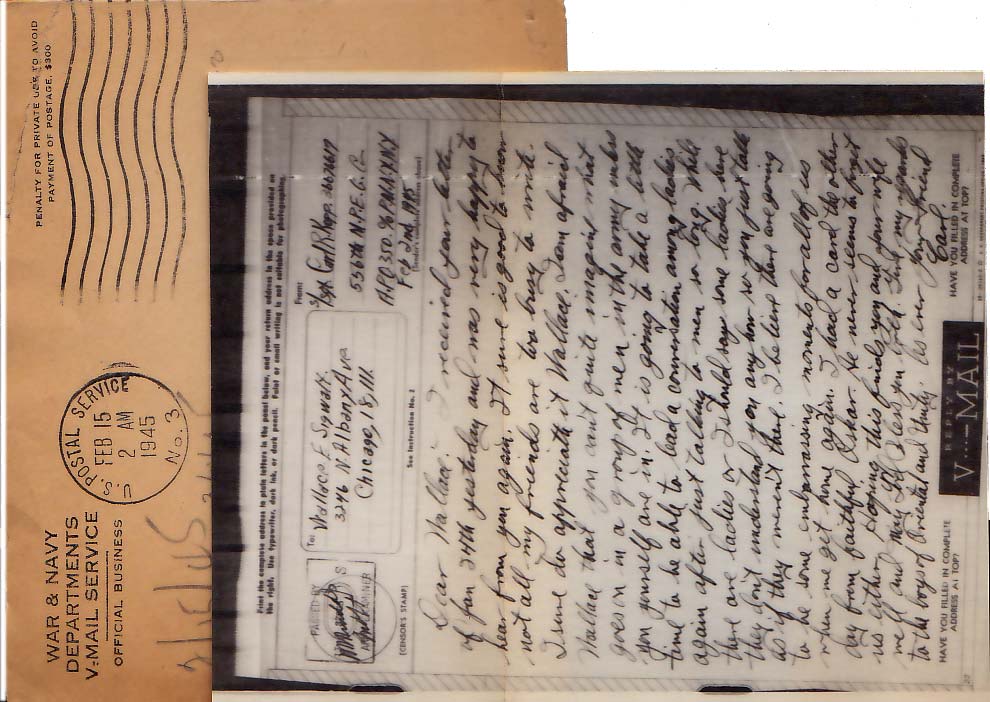 WAR & NAVY
DEPARTMENTS
V-MAIL SERVICE
OFFICIAL BUSINESS
U.S. POSTAL SERVICE
FEB 15
2 AM
1945
No. 3
PENALTY FOR PRIVATE USE TO AVOID
PAYMENT OF POSTAGE, $300
Print the complete address in plain letters in the panel below, and your return address in the space provided on
the right. Use typewriter, dark ink, or dark pencil. Faint or small writing is not suitable for photographing.
PASSED BY
EXAMINER
(CENSOR'S STAMP)
To: Wallace E.
3246 N. Albany Ave
Chicago, 18, Ill.
See Instruction No. 2
From:
556th H.P.E.C.C.
APO 350. % PM. N.Y. NY
Feb 2nd 1945
(Sender's complete address above)
Dear Wallace: I received your letter
of Jan 24th yesterday and was very happy to
hear from you again. It sure is good to know
not all my friends are too busy to write.
I sure do appreciate it Wallace. I am afraid
Wallace that you can't quite imagine what
goes on in a group of men in the army unless
you yourself are in. It is going to take a little
time to be able to lead a conversation among ladies
again after just talking to men so long. While
there are ladies or I should say some ladies here
they don't understand you any how so you just talk
as if they weren't there. I believe there are going
to be some embarrassing moments for all of us
when we get home again. I had a card the other
day from faithful Oscar. He never seems to forget
us either. Hoping this finds you and your wife
well and May God bless you both. Give my regards
to the boys of Oriental and thanks. As ever your friend
Carl
HAVE YOU FILLED IN COMPLETE
ADDRESS AT TOP?
REPLY BY
V···—MAIL
HAVE YOU FILLED IN COMPLETE
ADDRESS AT TOP?